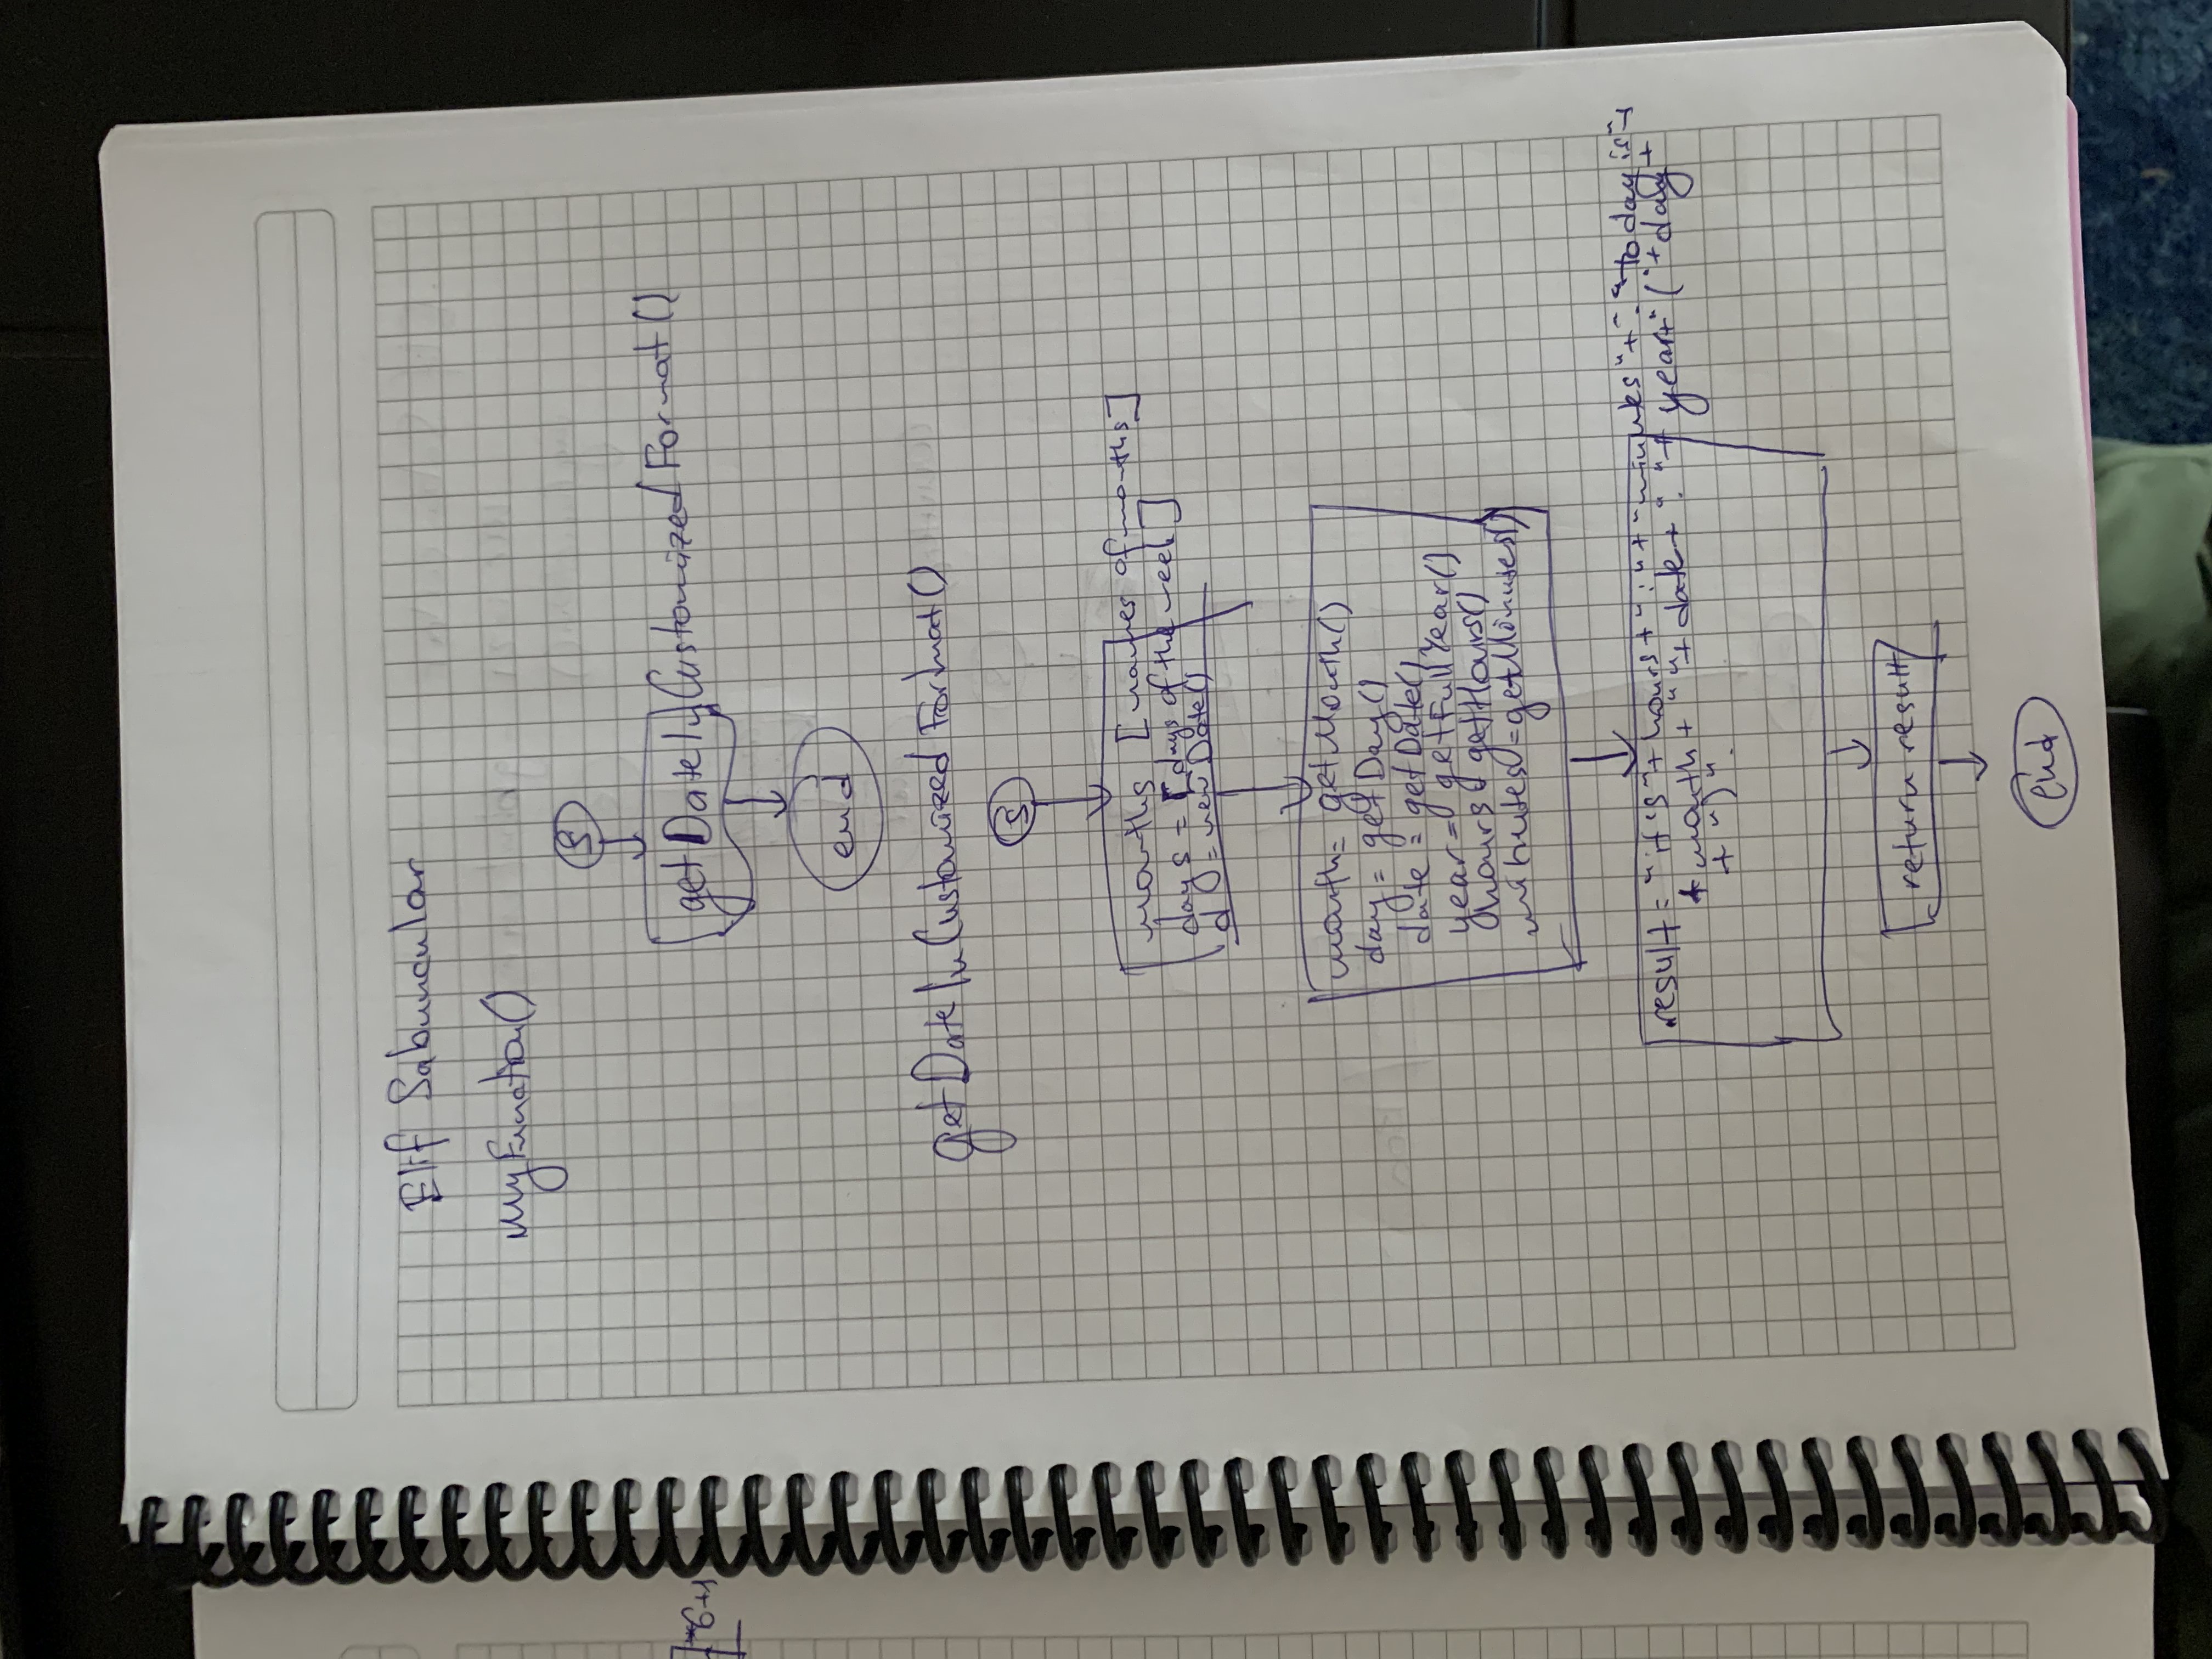 Elif Sabuncular
myFunction()
S
getDateInCustomizedFormat()
end
getDateInCustomizedFormat()
S
months [names of months]
days = [days of the week]
d = new Date()
month= getMonth()
day= getDay()
date = getDate()
year= getFullYear()
hours = getHours()
minutes =getMinutes()
result = "it's "+ hours + ":" + "minutes "+ ". "today is"+
+ month + " "+ date + ". "+ year+" ("+day +
+ ")".
return result
end